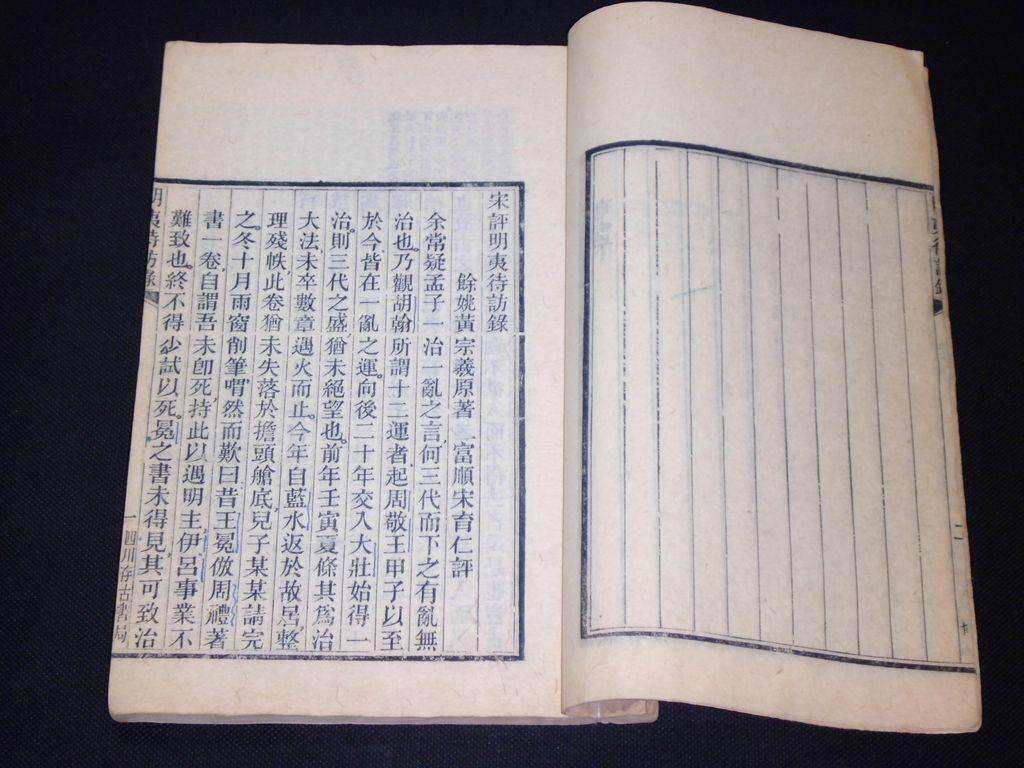 宋評明夷待訪錄
餘姚黃宗羲原著　富順宋育仁評
余常疑孟子一治一亂之言何三代而下之有亂無
治也。乃觀胡翰所謂十二運者起周敬王甲子以至
於今皆在一亂之運。向後二十年交入大壯始得一
治。則三代之盛猶未絕望也。前年壬寅夏條其為治
大法未卒數章遇火而止。今年自藍水返於故居整
理殘帙此卷猶未失落於擔頭艙底兒子某某請完
之。冬十月雨窗削筆喟然而歎曰昔王冕倣周禮著
書一卷自謂吾未卽死持此以遇明主伊呂事業不
難致也。終不得少試以死。冕之書未得見其可致治
明夷待訪錄
一
四川存古書局
二